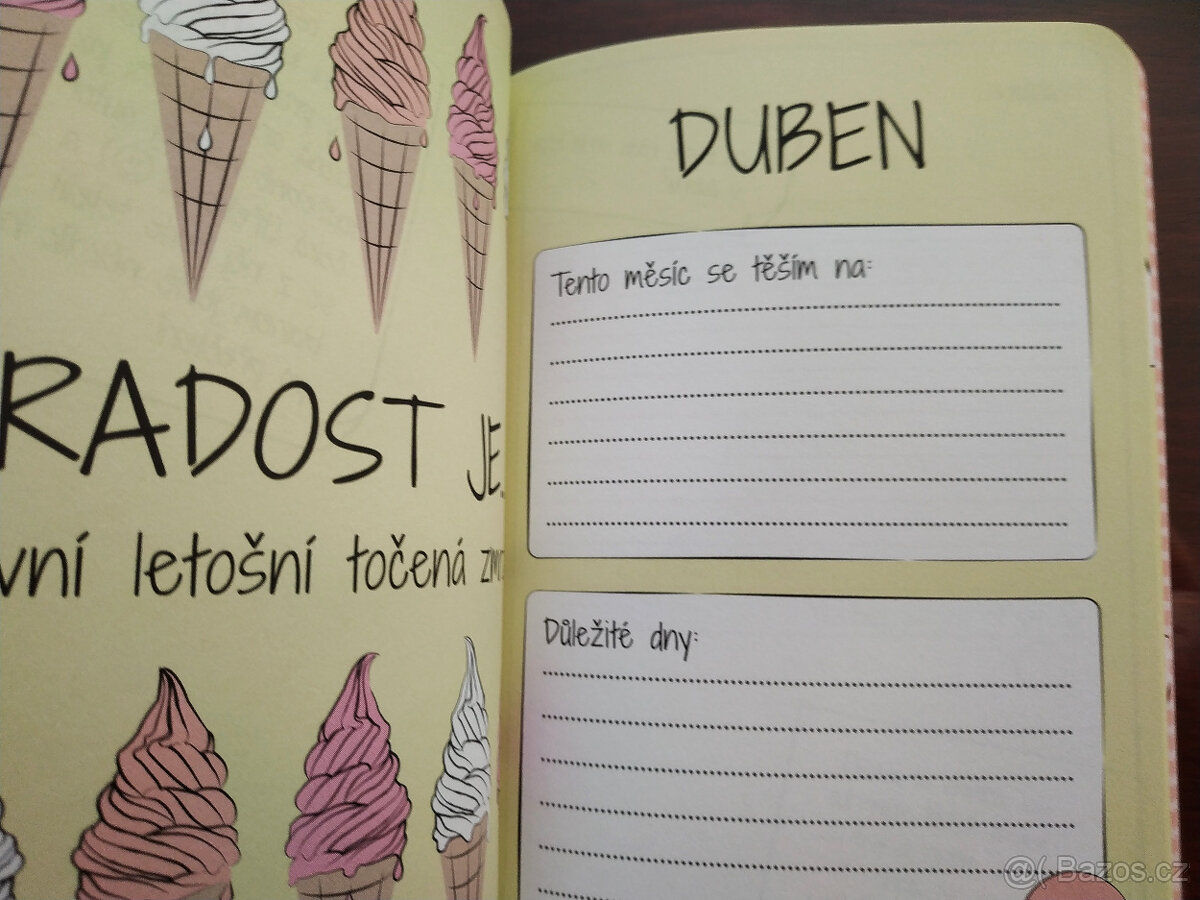 RADOST JE
letošní točená
DUBEN
Tento měsíc se těším na:
Důležité dny:
@( Bazos.cz